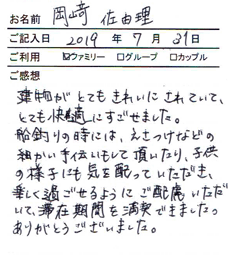 お名前 岡﨑 佐由理
ご記入日 2019 年 7 月 31日
ご利用 ☑ファミリー □グループ □カップル
ご感想
建物がとてもきれいにされていて、
とても快適にすごせました。
船釣りの時には、えさつけなどの
細かい手伝いもして頂いたり、子供
の様子にも気を配っていただき、
楽しく過ごせるようにご配慮いただ
いて、滞在期間を満喫できましたっ
ありがとうございました。